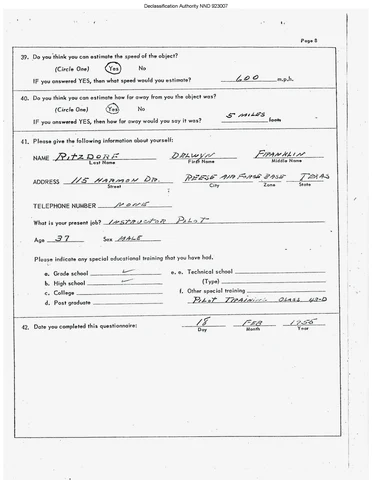 Declassification Authority NND 923007
Page 8
39. Do you think you can estimate the speed of the object?
(Circle One) Yes No
IF you answered YES, then what speed would you estimate? 600 m.p.h.
40. Do you think you can estimate how far away from you the object was?
(Circle One) Yes No
IF you answered YES, then how far away would you say it was? 5 MILES feet
41. Please give the following information about yourself:
NAME RITZDORF DELWYN FRANKLIN
Last Name First Name Middle Name
ADDRESS 115 HARMON DR. REESE AIR FORCE BASE TEXAS
Street City Zone State
TELEPHONE NUMBER NONE
What is your present job? INSTRUCTOR PILOT
Age 37 Sex MALE
Please indicate any special educational training that you have had.
a. Grade school ✓ e. Technical school
b. High school ✓ (Type)
c. College f. Other special training
d. Post graduate PILOT TRAINING CLASS 43-D
42. Date you completed this questionnaire: 18 FEB 1955
Day Month Year